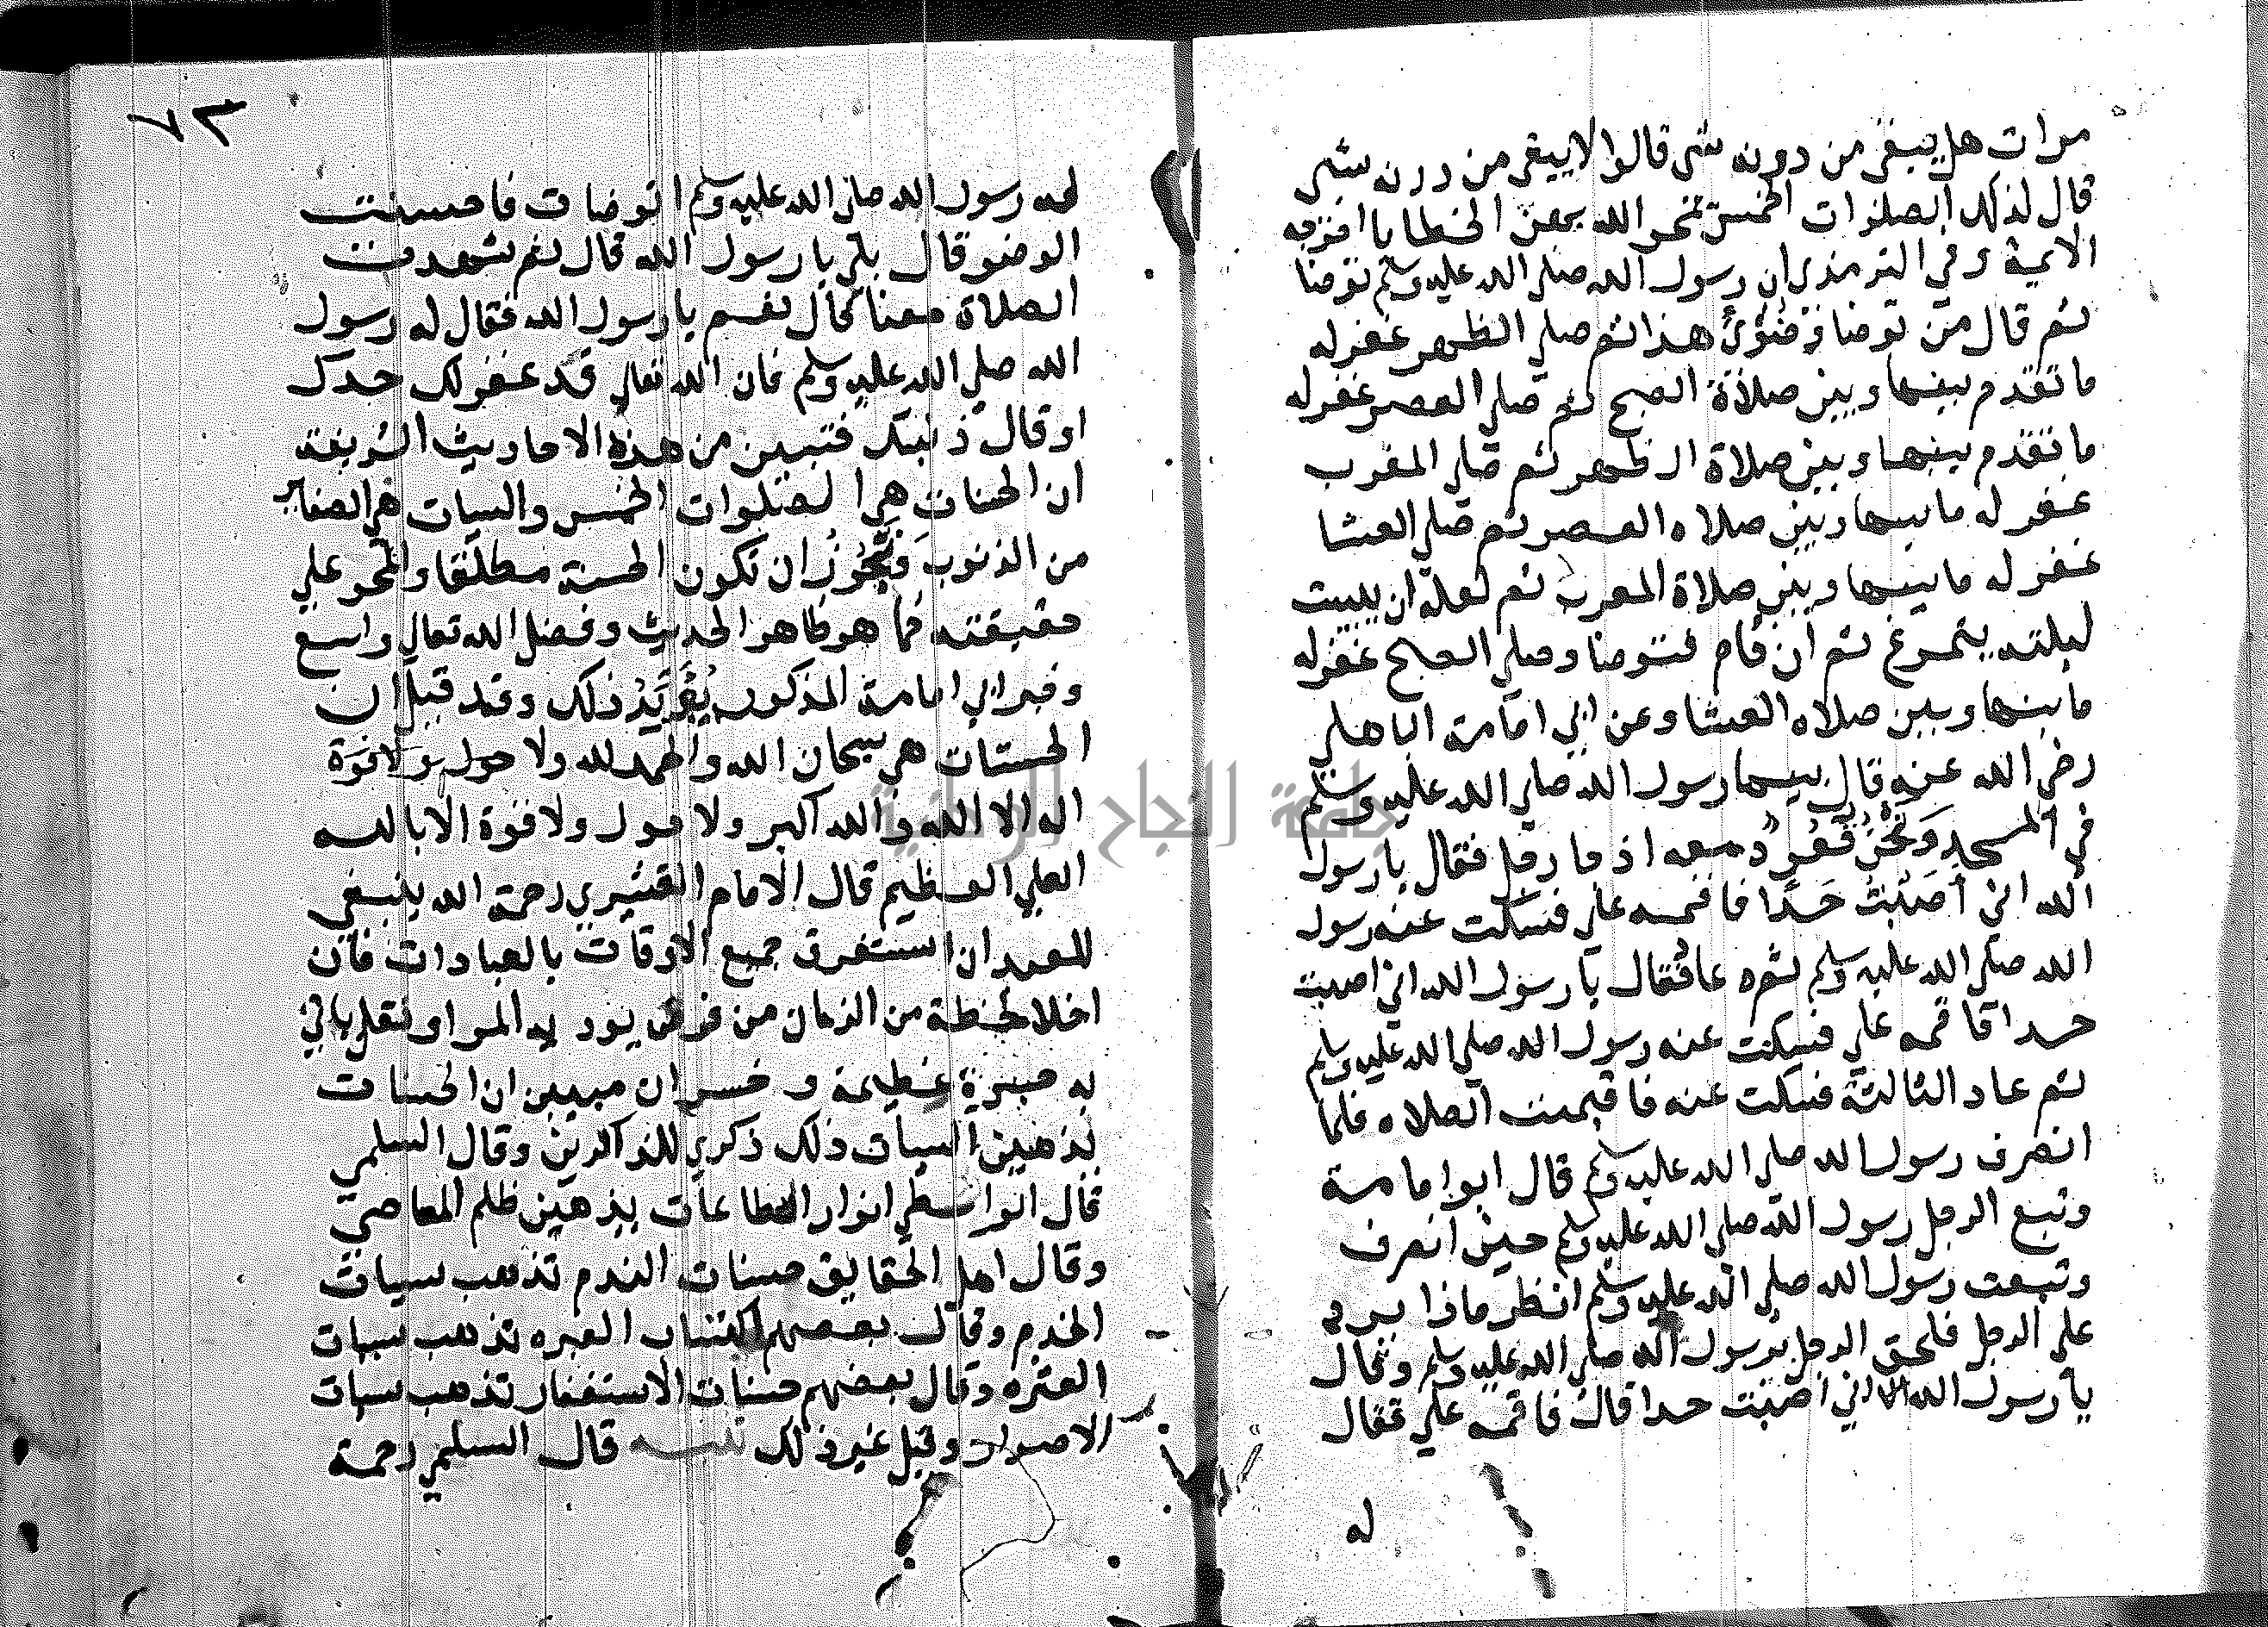 مرات هل يبقى من درنه شى قالوا لا يبقى من درنه شى
قال فذلك الصلوات الخمس تمحو الله بهن الخطايا اخرجه
الايمة وفي الترمذى ان رسول الله صلى الله عليه وسلم توضا
ثم قال من توضا وُضُوئى هذا ثم صلى الظهر غفر له
ما تقدم بينها وبين صلاة الصبح ثم صلى العصر غفر له
ما تقدم بينها وبين صلاة الظهر ثم صلى المغرب
غفر له ما بينها وبين صلاه العصر ثم صلى العشا
غفر له ما بينها وبين صلاة المغرب ثم لعله ان يبيت
ليلته يتمرغ ثم ان قام فتوضا وصلى الصبح غفر له
ما بينها وبين صلاه العشا وعن ابي امامة الباهلي
رضي الله عنه قال بينما رسول الله صلى الله عليه وسلم
في المسجد وَنَحْنُ قُعُودٌ معه اذ جا رجل فقال يا رسول
الله اني أَصَبْتُ حَدًا فاقمه على فسكت عنه رسول
الله صلى الله عليه وسلم ثم عاد فقال يا رسول الله اني اصبت
حدا فاقمه علي فسكت عنه رسول الله صلى الله عليه وسلم
ثم عاد الثالثة فسكت عنه فاقيمت الصلاه فلما
انصرف رسول الله صلى الله عليه وسلم قال ابو امامة
وتبع الرجل رسول الله صلى الله عليه وسلم حين انصرف
وتبعت رسول الله صلى الله عليه وسلم انظر ماذا يرد
على الرجل فلحق الرجل رسول الله صلى الله عليه وسلم وقال
يا رسول الله اني اصبت حدا قال فاقمه علي فقال
له
٧٣
له رسول الله صلى الله عليه وسلم اتوضات فاحسنت
الوضو قال بلى يا رسول الله قال ثم شهدت
الصلاة معنا قال نعم يا رسول الله فقال له رسول
الله صلى الله عليه وسلم فان الله تعالى قد غفر لك حدك
او قال ذنبك فتبين من هذه الاحاديث الشريفة
ان الحسنات هي الصلوات الخمس والسيات هي الصغاير
من الذنوب وَيَجُوزُ ان تكون الحسنة مطلقا والمحو على
حقيقته كما هو ظاهر الحديث وفضل الله تعالى واسع
وخبر ابي امامة المذكور يُؤَيِّدُ ذلك وقد قيل ان
الحسنات هي سبحان الله والحمد لله ولا حول ولا قوة
اله الا الله والله اكبر ولا حول ولا قوة الا بالله
العلي العظيم قال الامام القشيري رحمة الله ينبغي
للعبد ان استغرق جميع الاوقات بالعبادات فان
اخلا لحظة من الزمان من فرض يود يه المرا او نفل ياتي
به حسرة عظيمة و خسران مبين ان الحسنات
يذهبن السيات ذلك ذكرى للذاكرين وقال السلمي
قال الواسطي انوار الطاعات يذهبن ظلم المعاصي
وقال اهل الحقايق حسنات الندم تذهب سيات
الجرم وقال بعضهم اكتساب العبره تذهب سيات
العثره وقال بعضهم حسنات الاستغفار تذهب سيات
الاصرار وقيل غير ذلك تنبيه قال السلمي رحمة
جامعة النجاح الوطنية